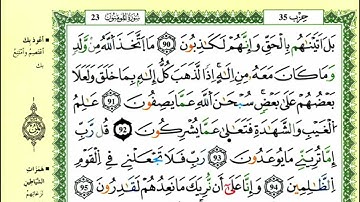 23 سورة المؤمنون
حزب 35
بَلْ أَتَيْنَٰهُم بِالْحَقِّ وَإِنَّهُمْ لَكَٰذِبُونَ 90 مَا اَتَّخَذَ اَللَّهُ مِنْ وَّلَدٍ
وَمَا كَانَ مَعَهُۥ مِنِ اِلَٰهٍ اِذاً لَّذَهَبَ كُلُّ إِلَٰهٍۢ بِمَا خَلَقَ وَلَعَلَا
بَعْضُهُمْ عَلَىٰ بَعْضٍ سُبْحَٰنَ اَللَّهِ عَمَّا يَصِفُونَ 91 عَٰلِمُ
اَلْغَيْبِ وَالشَّهَٰدَةِ فَتَعَٰلَىٰ عَمَّا يُشْرِكُونَ 92 قُل رَّبِّ
إِمَّا تُرِيَنِّي مَا يُوعَدُونَ 93 رَبِّ فَلَا تَجْعَلْنِي فِي اِلْقَوْمِ
اِلظَّٰلِمِينَ 94 وَإِنَّا عَلَىٰ أَن نُّرِيَكَ مَا نَعِدُهُمْ لَقَٰدِرُونَ 95
أعوذ بك
أعتصم وأمتنع
بك
همزات
الشياطين